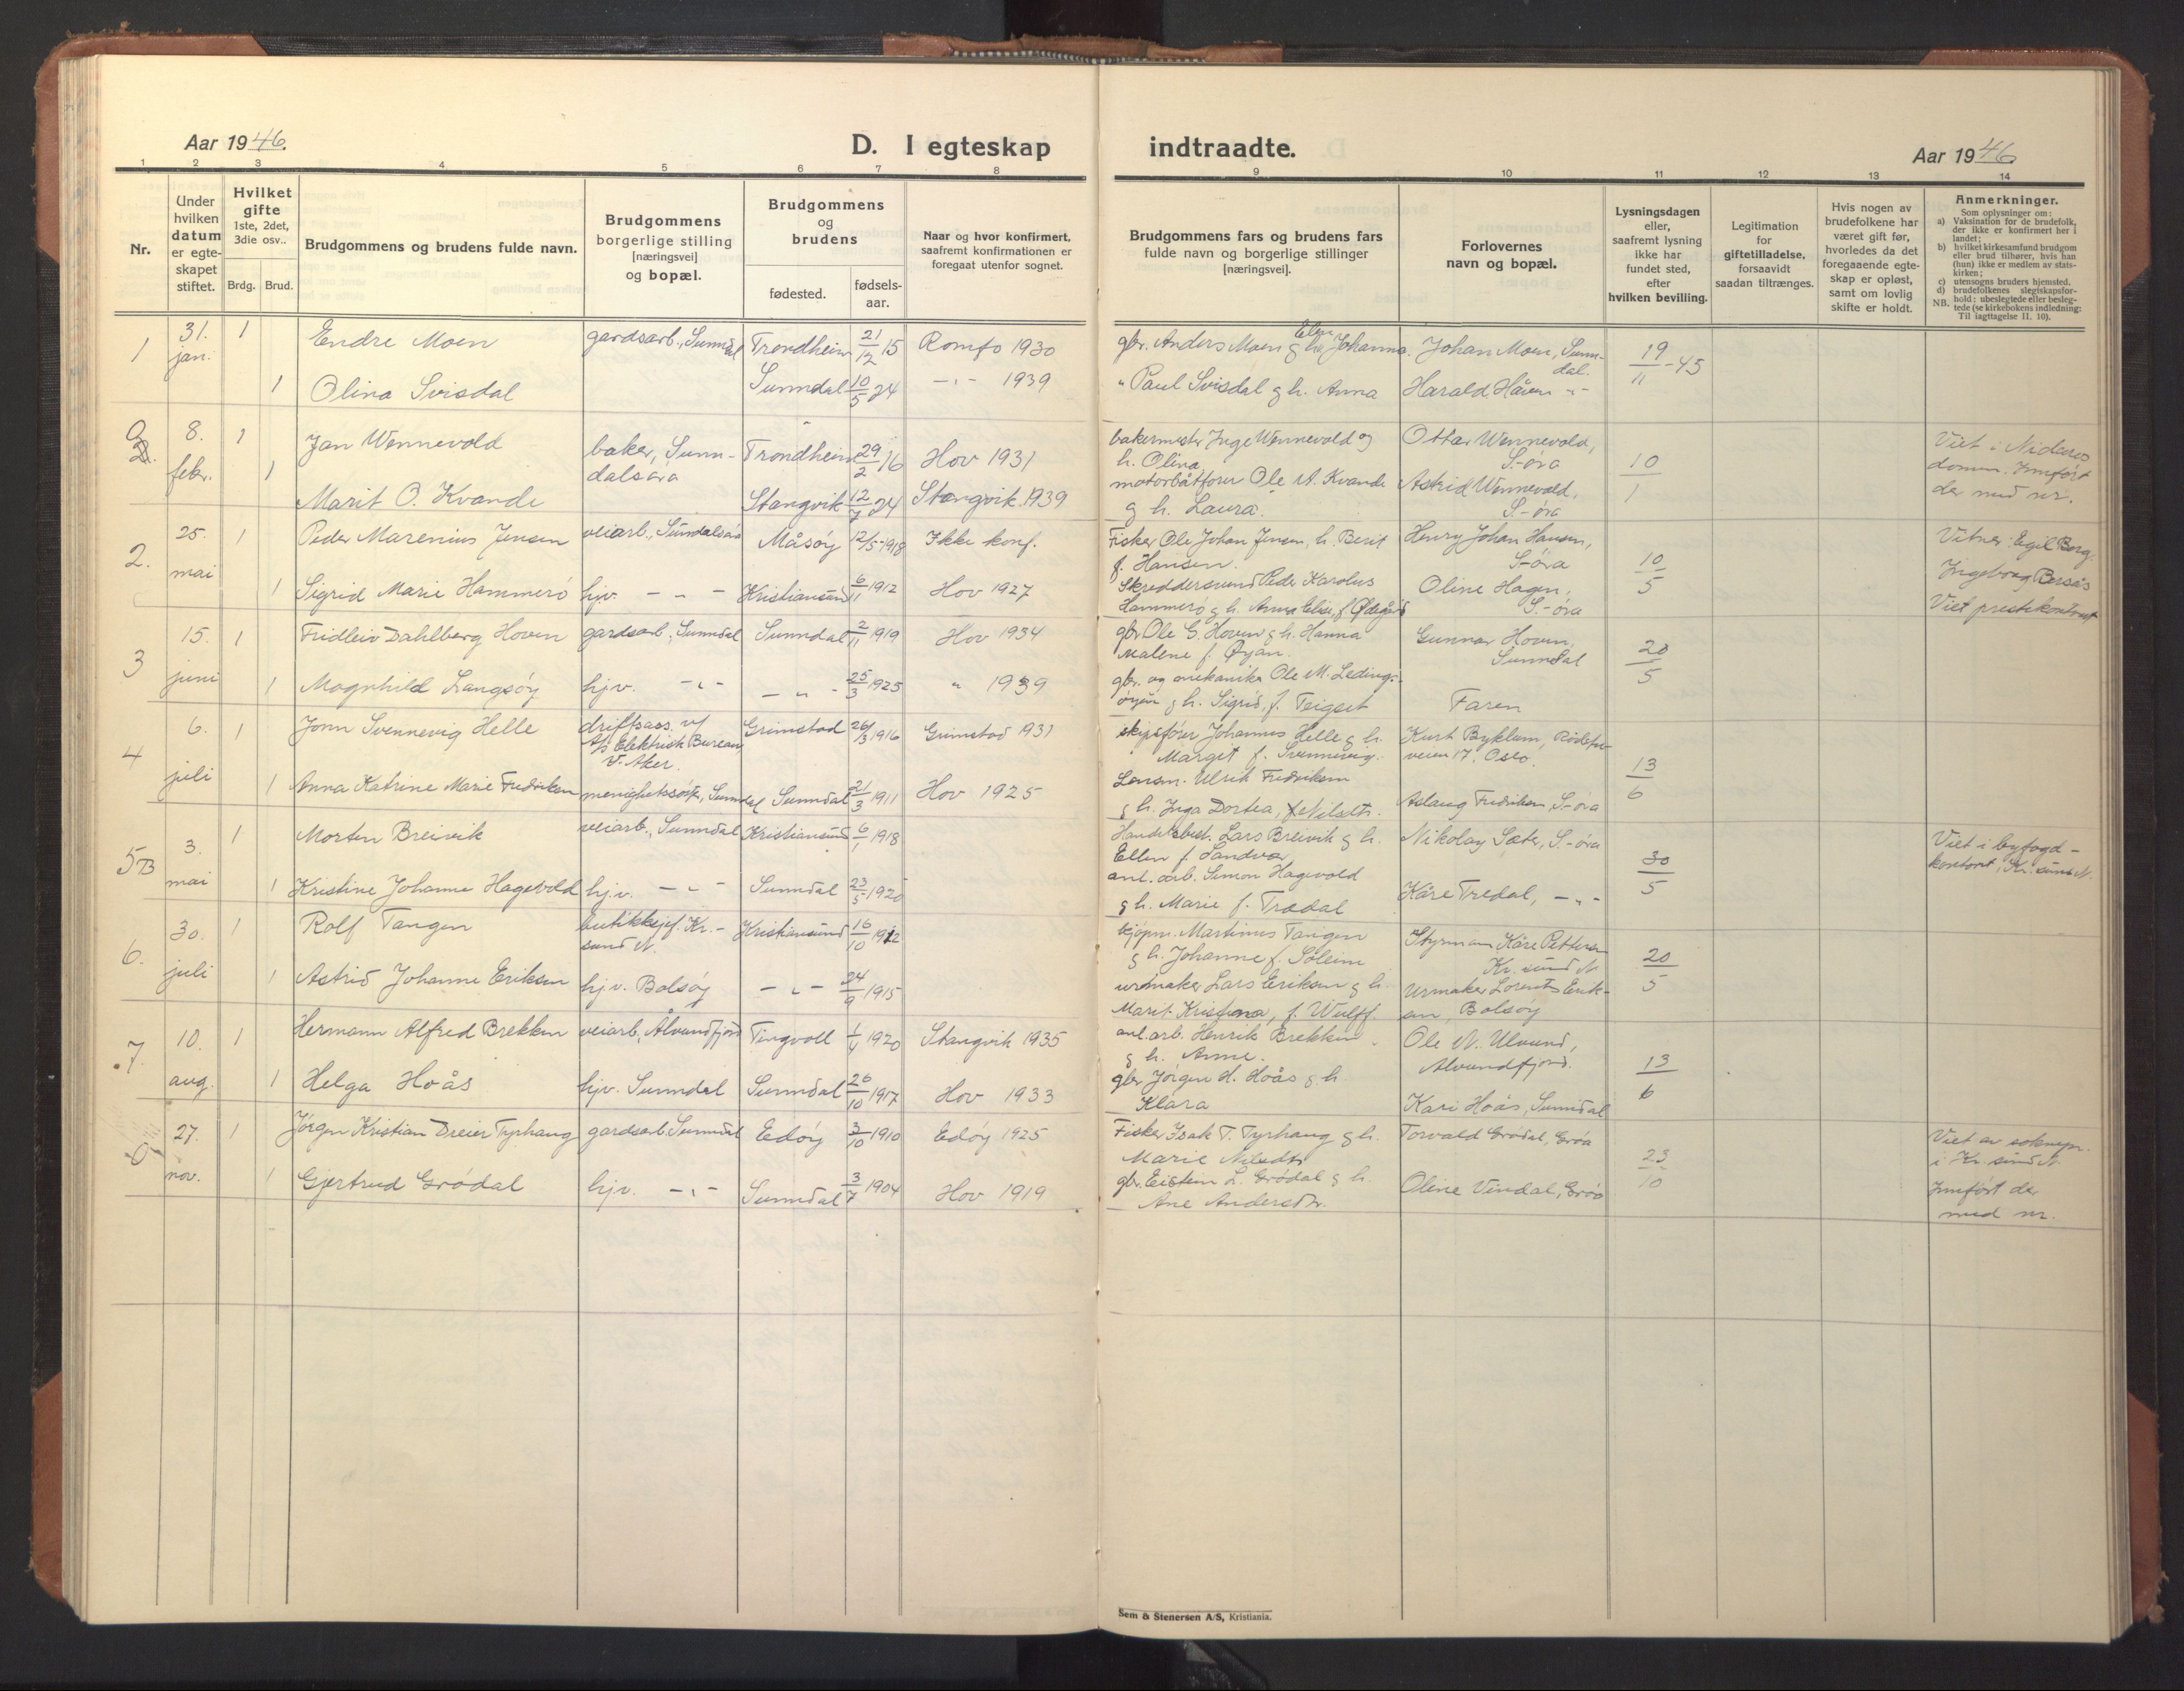 Aar 1946.
D. I egteskap indtraadte.
Aar 1946
1 2 3 4 5 6 7 8 9 10 11 12 13 14
Nr.
Under hvilken datum er egte-skapet stiftet.
Hvilket gifte 1ste, 2det, 3die osv..
Brdg. Brud.
Brudgommens og brudens fulde navn.
Brudgommens borgerlige stilling [næringsvei] og bopæl.
Brudgommens og brudens
fødested.
fødsels-aar.
Naar og hvor konfirmert, saafremt konfirmationen er foregaat utenfor sognet.
Brudgommens fars og brudens fars fulde navn og borgerlige stillinger [næringsvei].
Forlovernes navn og bopæl.
Lysningsdagen eller, saafremt lysning ikke har fundet sted, efter hvilken bevilling.
Legitimation for giftetilladelse, forsaavidt saadan tiltrænges.
Hvis nogen av brudefolkene har været gift før, hvorledes da det foregaaende egte-skap er opløst, samt om lovlig skifte er holdt.
Anmerkninger.
Som oplysninger om:
a) Vaksination for de brudefolk, der ikke er konfirmert her i landet;
b) hvilket kirkesamfund brudgom eller brud tilhører, hvis han (hun) ikke er medlem av stats-kirken;
c) utensogns bruders hjemsted.
d) brudefolkenes slegtskapsfor-hold: ubeslegtede eller besleg-tede (se kirkebokens indledning:
NB. Til iagttagelse II. 10).
1 31. jan. 1 Endre Moen gardsarb., Sunndal Trondheim 21/12 15 Romfo 1930 gbr. Anders Moen g h. Elen Johanna. Johan Moen, Sunn-dal. 19/11-45
1 Olina Svisdal Sunndal 10/5 24 -"- 1939 " Paul Svisdal g h. Anna Harald Håven -"-
8. febr. 1 Jan Wennevold baker, Sunn-dalsøra Trondheim 29/2 16 Hov 1931 bakermester Inge Wennevold og h. Olina Ottar Wennevold, S-øra 10/1 Viet i Nidaros domen. Innført der med nr.
1 Marit O. Kvande Stangvik 12/7 24 Stangvik 1939 motorbåtfører Ole A. Kvande g h. Laura. Astrid Wennevold, S.-øra
2. 25. mai 1 Peder Marenius Jensen veiarb., Sunndalsøra Måsøy 12/5 1918 Ikke konf. Fisker Ole Johan Jensen, h. Berit f. Hansen. Henry Johan Hansen, S-øra 10/5 Vitner: Egil Berg Ingeborg Bersås Viet prestekontoret
1 Sigrid Marie Hammerø hjv. - " - Kristiansund 6/11 1912 Hov 1927 Skreddersvend Peder Karolus Hammerø g h. Anna Elise, f Ødegård Oline Hagen, S.-øra
3 15. juni 1 Fridleiv Dahlberg Hoven gardsarb., Sunndal Sunndal 2/11 1919 Hov 1934 gbr Ole G. Hoven g h. Hanna Malene f. Øyan. Gunnar Hoven, Sunndal 20/5
1 Magnhild Langsøy hjv. -"- -"- 25/3 1925 " 1939 gbr. og mekanikr Ole M. Leding-øyen g h. Sigrid, f. Teigset Faren
4 6. juli 1 Jonn Svennevig Helle driftsass. v/ A/S Elektrisk Bureau, V. Aker. Grimstad 26/3 1916 Grimstad 1931 skipsfører Johannes Helle g h. Marget f. Svennevig. Kurt Byklum, veien 17, Oslo. 13/6
1 Anna Katrine Marie Fredriksen menighetssøst., Sunndal Sunndal 21/3 1911 Hov 1925 Lensm. Ulrik Fredriksen g h. Inga Dortea, f. Nilsdtr. Aslaug Fredriksen, S.-øra
5B 3. mai 1 Morten Breivik veiarb., Sunndal Kristiansund 6/1 1918 Handelsbest. Lars Breivik g h. Ellen f. Sandvær Nikolay Sæter, S.-øra 30/5 Viet i byfogd-kontoret, Kr.sund N.
1 Kristine Johanne Hagevold hjv. -"- Sunndal 23/5 1920 anl. arb. Simon Hagevold g h. Marie f. Trædal Kåre Tredal, -"-
6. 30. juli 1 Rolf Tangen butikksjef. Kr.-sund N. Kristiansund 16/10 1912 kjøpm. Martinus Tangen g h. Johanne f. Soleim Styrmann Kåre Pettersen Kr. sund N 20/5
1 Astrid Johanne Eriksen hjv. Bolsøy -"- 24/9 1915 urmaker Lars Eriksen g h. Marit Kristiana, f. Wulff. Urmaker Lorents Erik-sen, Bolsøy
7. 10. aug. 1 Hermann Alfred Brekken veiarb., Ålvundfjord Tingvoll 1/4 1920 Stangvik 1935 anl. arb. Henrik Brekken g h. Anne. Ole N. Ulvund, Ålvundfjord. 13/6
1 Helga Hoås hjv. Sunndal Sunndal 26/10 1917 Hov 1933 gbr Jørgen H. Hoås g h. Klara Kari Hoås, Sunndal
0 27. nov. 1 Jørgen Kristian Dreier Tyrhaug gardsarb. Sunndal Edøy 3/10 1910 Edøy 1925 Fisker Isak T. Tyrhaug g h. Marie Nilsdtr Torvald Grødal, Grøa 23/10 Viet av soknepr. i Kr. sund N. Innført der med nr.
1 Gjertrud Grødal hjv. -"- Sunndal 3/7 1904 Hov 1919 gbr. Eistein L. Grødal g h. Ane Andersdtr. Oline Vindal, Grøa
Sem & Stenersen A/S, Kristiania.